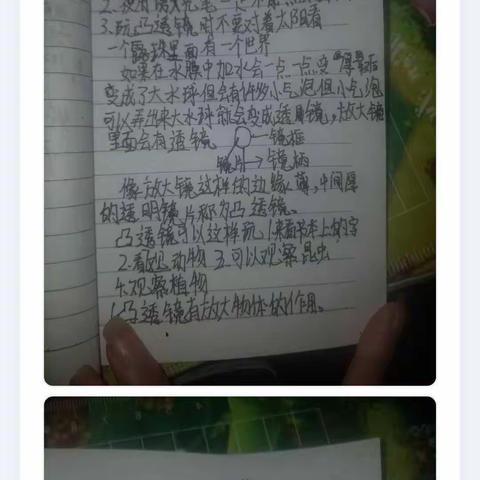 3.玩凸透镜时不要对着太阳看
一个露珠里面有一个世界
如果在水膜中加水会一点一点变厚最后
变成了大水球但会有许多小气泡但小气泡
可以弄出来大水球就会变成透明镜,放大镜
里面会有透镜
镜框
镜片→镜柄
像放大镜这样的边缘薄,中间厚
的透明镜片称为凸透镜。
凸透镜可以这样玩1.来看书本上的字
2.看观动物 3.可以观察昆虫
4.观察植物
1.凸透镜有放大物体的作用。